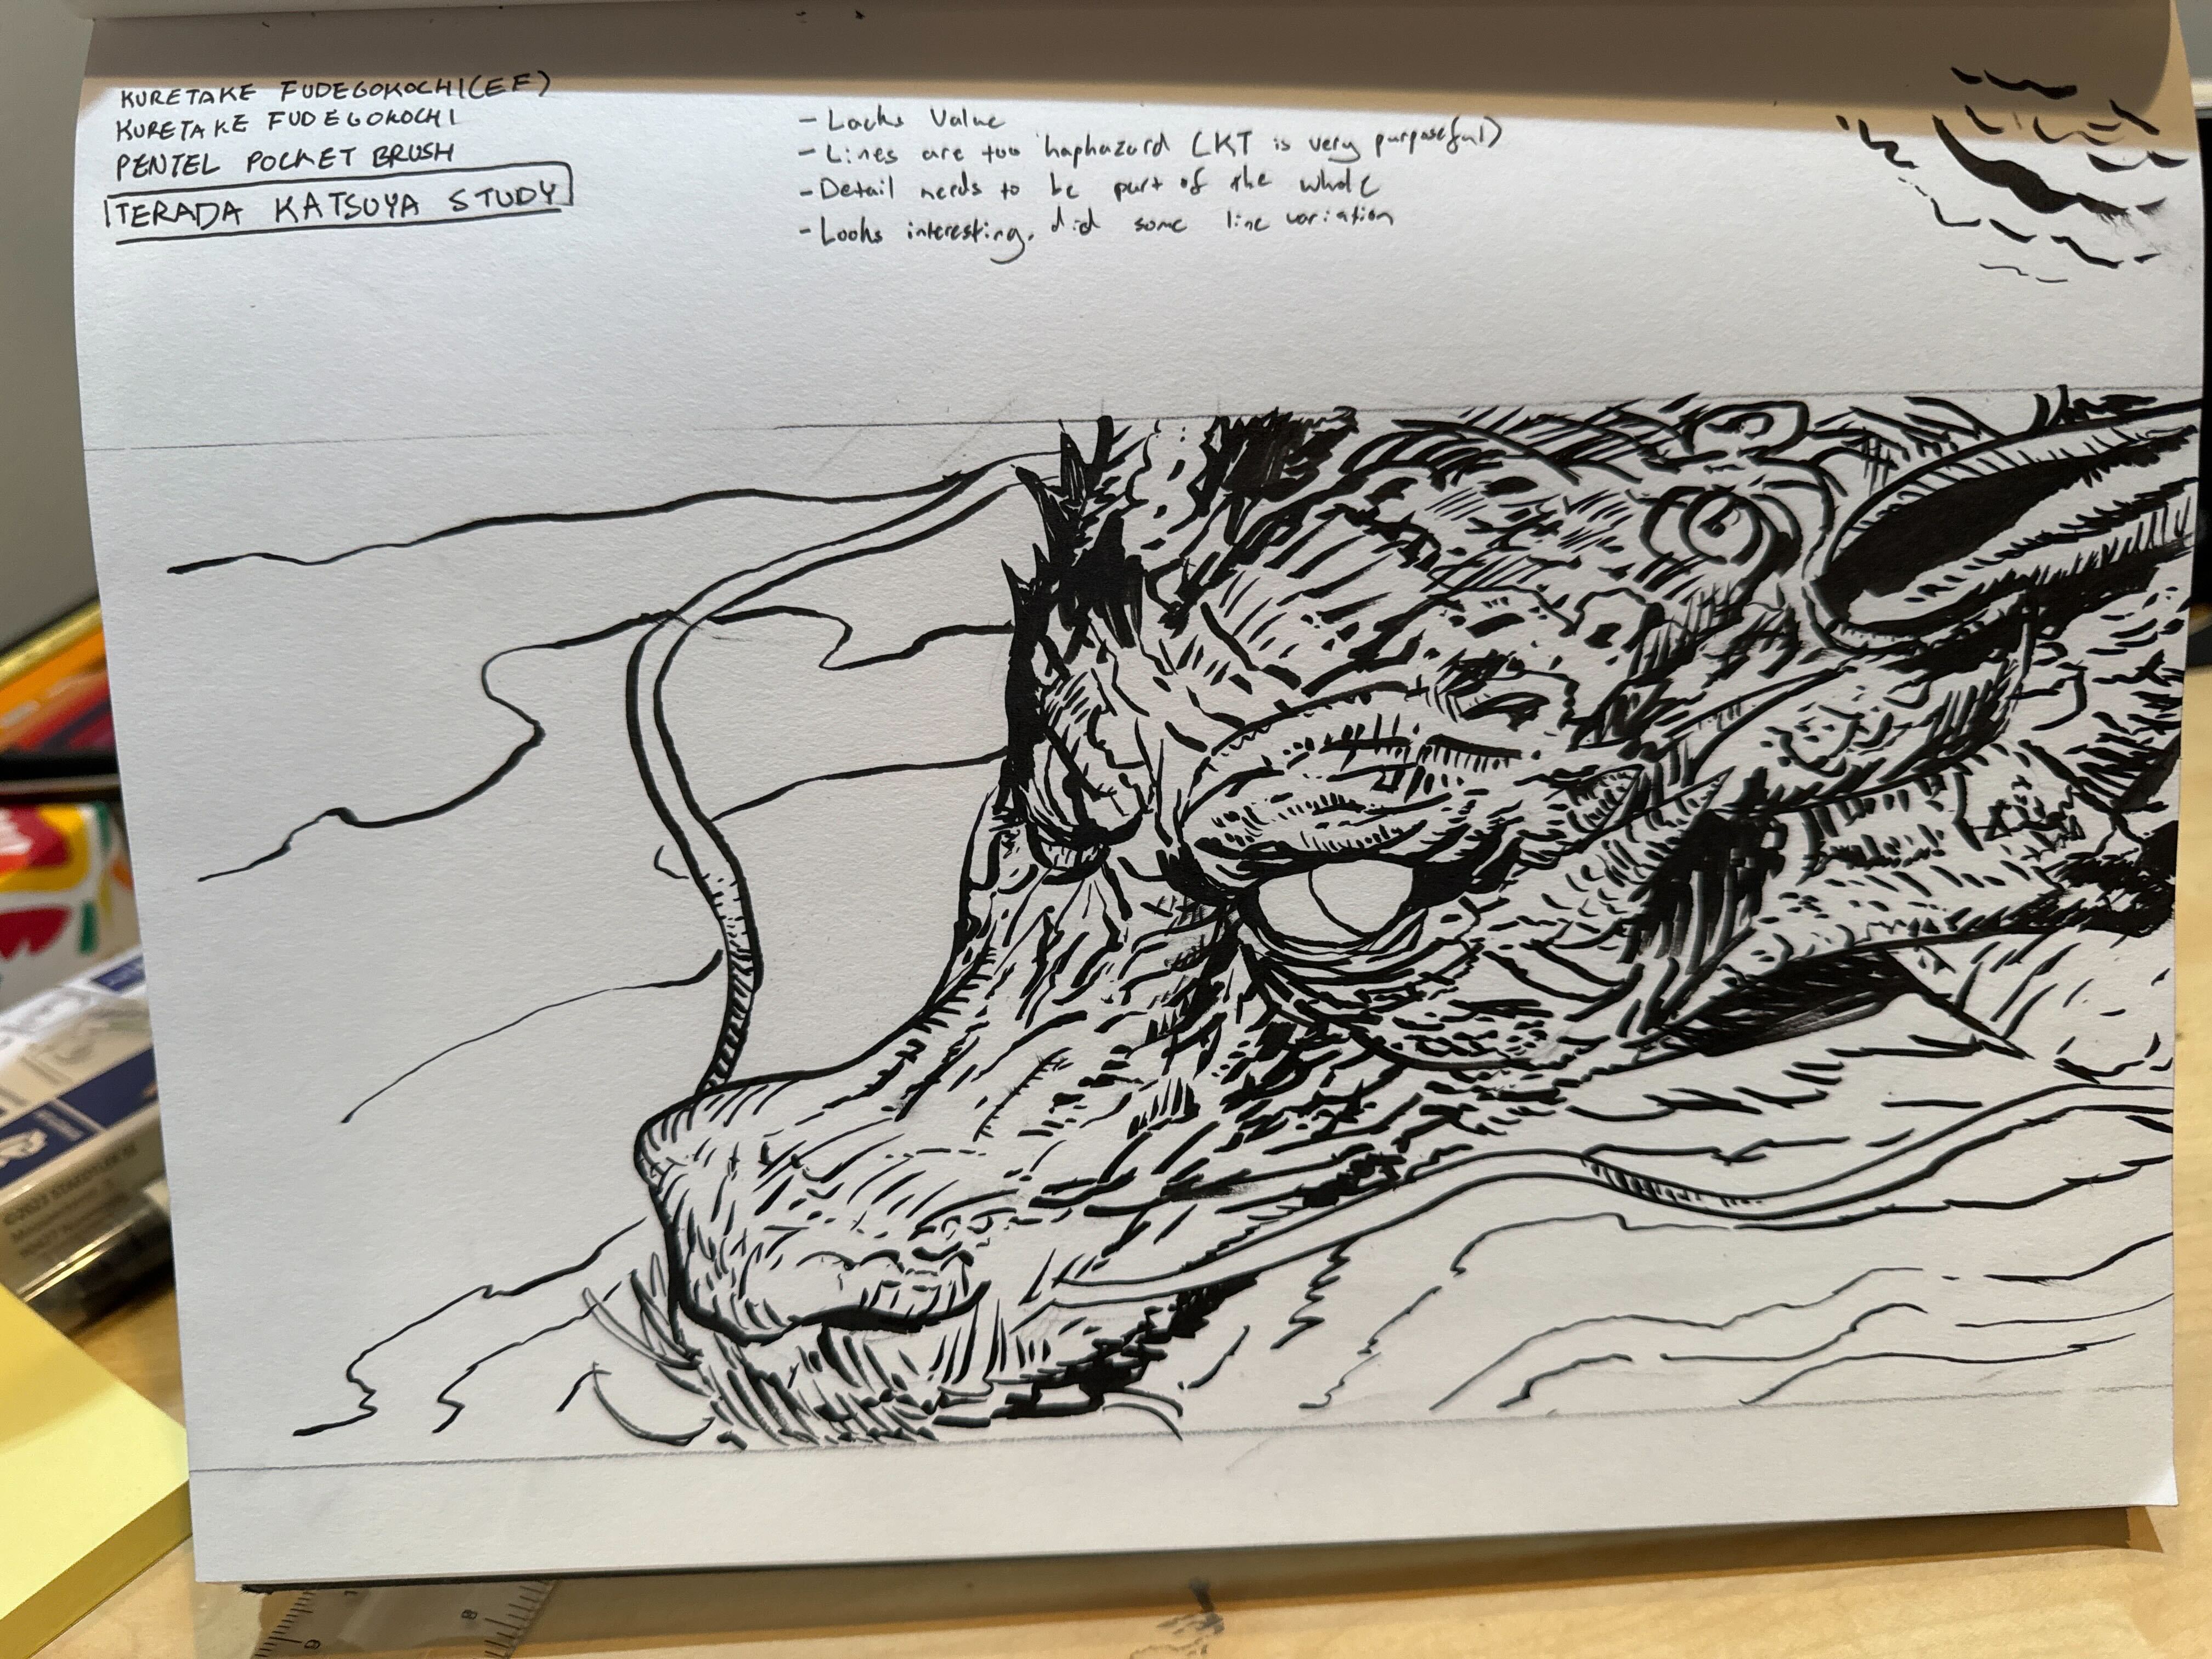 KURETAKE FUDEGOKOCHI(EF)
KURETAKE FUDEGOKOCHI
PENTEL POCKET BRUSH
TERADA KATSUYA STUDY
- Lacks Value
- Lines are too haphazard (KT is very purposeful)
- Detail needs to be part of the whole
- Looks interesting, did some line variation
8
9